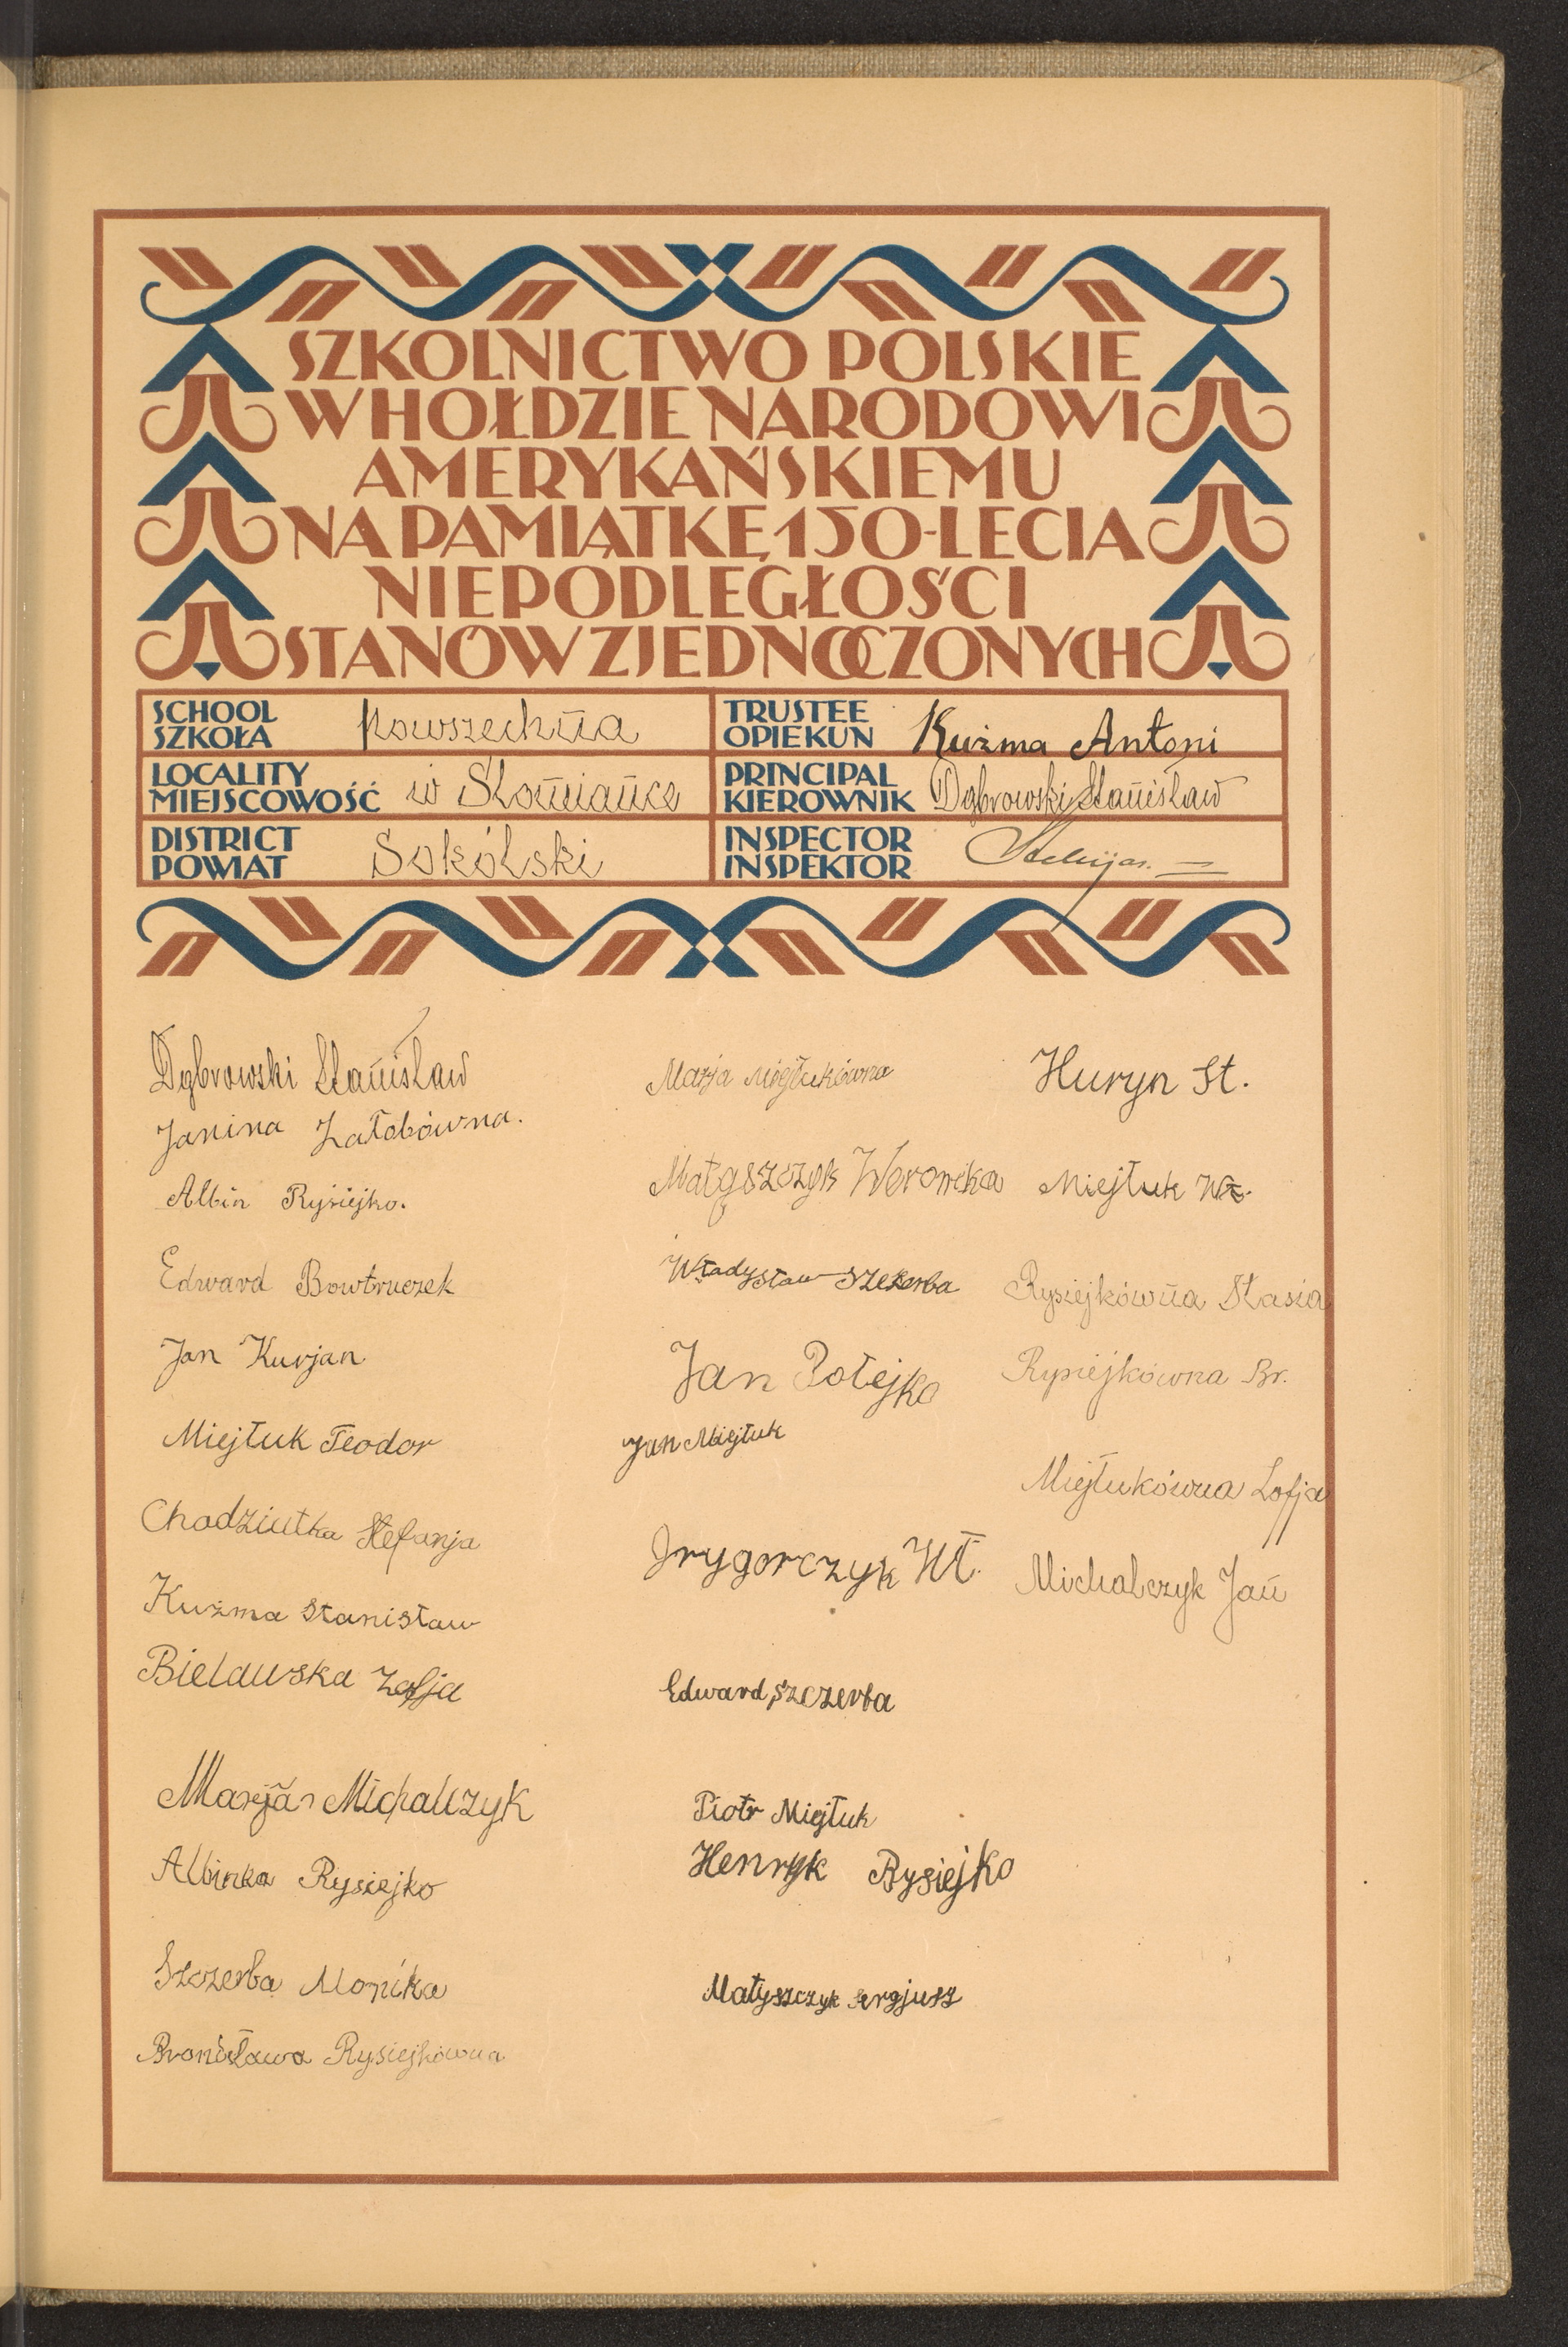 SZKOLNICTWO POLSKIE
W HOŁDZIE NARODOWI
AMERYKAŃSKIEMU
NA PAMIĄTKĘ 150-LECIA
NIEPODLEGŁOŚCI
STANÓW ZJEDNOCZONYCH
SCHOOL
SZKOŁA
Powszechna
TRUSTEE
OPIEKUN
Kuźma Antoni
LOCALITY
MIEJSCOWOŚĆ
w Słomiance
PRINCIPAL
KIEROWNIK
Dąbrowski Stanisław
DISTRICT
POWIAT
Sokólski
INSPECTOR
INSPEKTOR
Dąbrowski Stanisław
Janina Załobówna.
Albin Rysiejko.
Edward Bowtruczek
Jan Kurjan
Miejłuk Teodor
Chodziutka Stefanja
Kuźma Stanisław
Bielawska Zofja
Marjan Michalczyk
Albinka Rysiejko
Szczerba Monika
Bronisława Rysiejkówna
Marja Miejłukówna
Małyszczyk Weronika
Władysław Szczerba
Jan Połejko
Jan Miejłuk
Grygorczyk Wł.
Edward Szczerba
Piotr Miejłuk
Henryk Rysiejko
Małyszczyk Sergjusz
Huryn St.
Miejłuk Wł.
Rysiejkówna Stasia
Rysiejkówna Br.
Miejłukówna Zofja
Michalczyk Jan